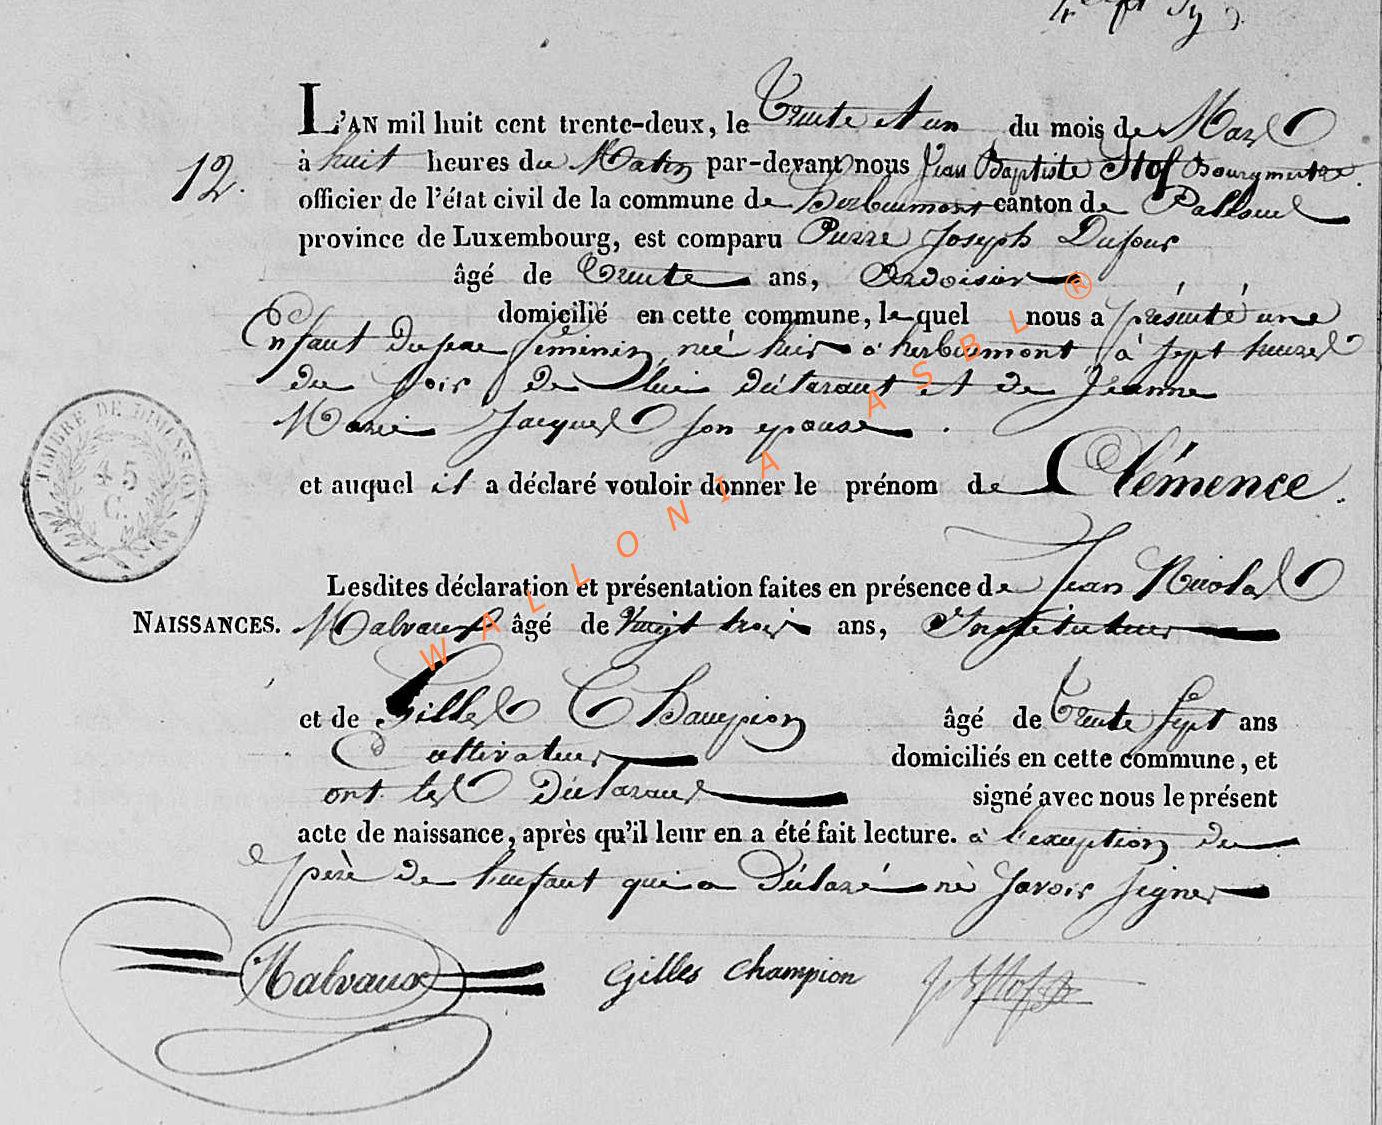 L'AN mil huit cent trente-deux, le Trente et un du mois de Mars
12. à huit heures du Matin par-devant nous Jean Baptiste Stof Bourgmestre
officier de l'état civil de la commune de herbeumont canton de Paliseul
province de Luxembourg, est comparu Pierre Joseph Dufour
âgé de Trente ans, Ardoisier
domicilié en cette commune, lequel nous a présenté une
Enfant du sexe féminin, né hier à herbeumont à sept heures
du soir de lui déclarant et de Jeanne
Marie Jacques son epouse .
TIMBRE DE DIMENSION
45
C.
et auquel il a déclaré vouloir donner le prénom de Clémence.
Lesdites déclaration et présentation faites en présence de Jean Nicolas
NAISSANCES. Malvaux âgé de Vingt trois ans, Instituteur
et de Gilles Champion âgé de Trente sept ans
Cultivateur domiciliés en cette commune, et
ont les Déclarans signé avec nous le présent
acte de naissance, après qu'il leur en a été fait lecture. à l'exception du
père de l'enfant qui a Déclaré ne savoir signer
Malvaux Gilles Champion
WALLONIA ASBL ®